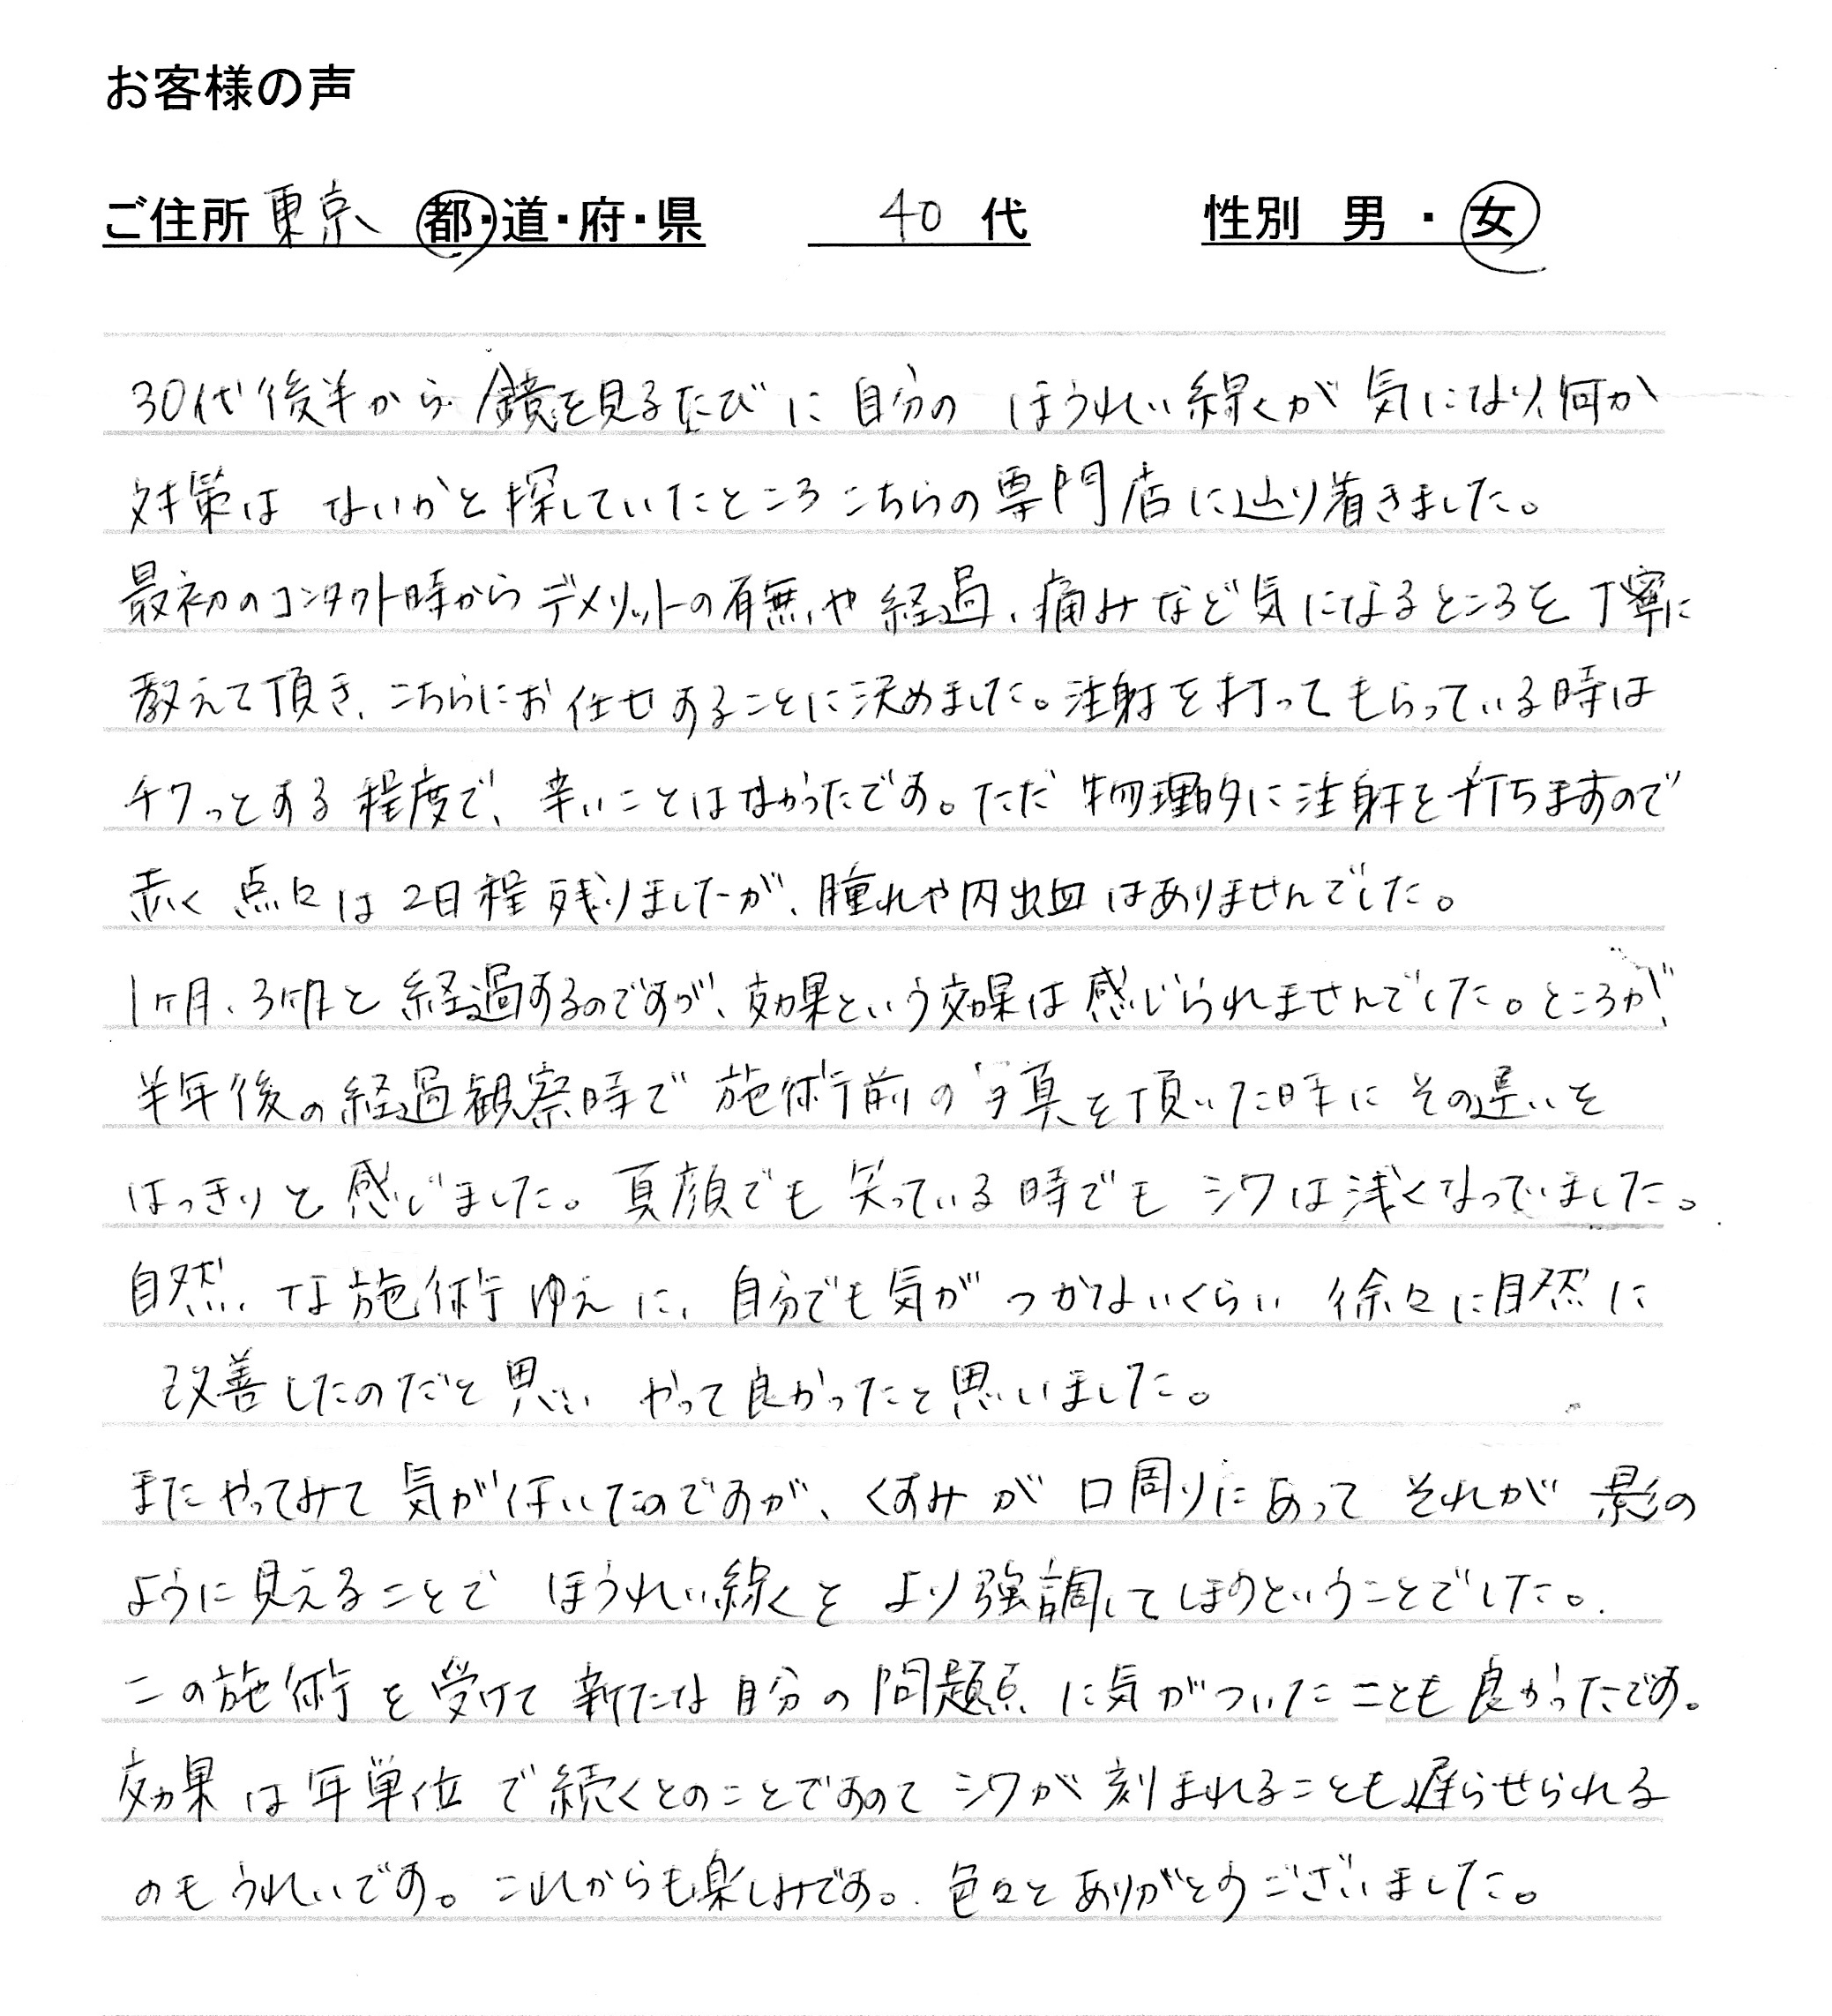 お客様の声
ご住所 東京 都・道・府・県 40 代 性別 男 ・ 女
30代後半から鏡を見るたびに自分の ほうれい線が気になり、何か
対策は ないかと探していたところこちらの専門店に辿り着きました。
最初のコンタクト時からデメリットの有無や経過、痛みなど気になるところを丁寧に
教えて頂き、こちらにお任せすることに決めました。注射を打ってもらっている時は
チクっとする程度で、辛いことはなかったです。ただ物理的に注射を打ちますので
赤く点々は2日程残りましたが、腫れや内出血はありませんでした。
1ヶ月、3ヶ月と経過するのですが、効果という効果は感じられませんでした。ところが、
半年後の経過観察時で施術前の写真を頂いた時にその違いを
はっきりと感じました。真顔でも笑っている時でもシワは浅くなっていました。
自然な施術ゆえに、自分でも気がつかないくらい徐々に自然に
改善したのだと思い やって良かったと思いました。
またやってみて気が付いたのですが、くすみが口周りにあってそれが影の
ように見えることで ほうれい線をより強調してしまうということでした。
この施術を受けて新たな自分の問題点に気がついたことも良かったです。
効果は年単位で続くとのことですのでシワが刻まれることも遅らせられる
のもうれしいです。これからも楽しみです。色々とありがとうございました。